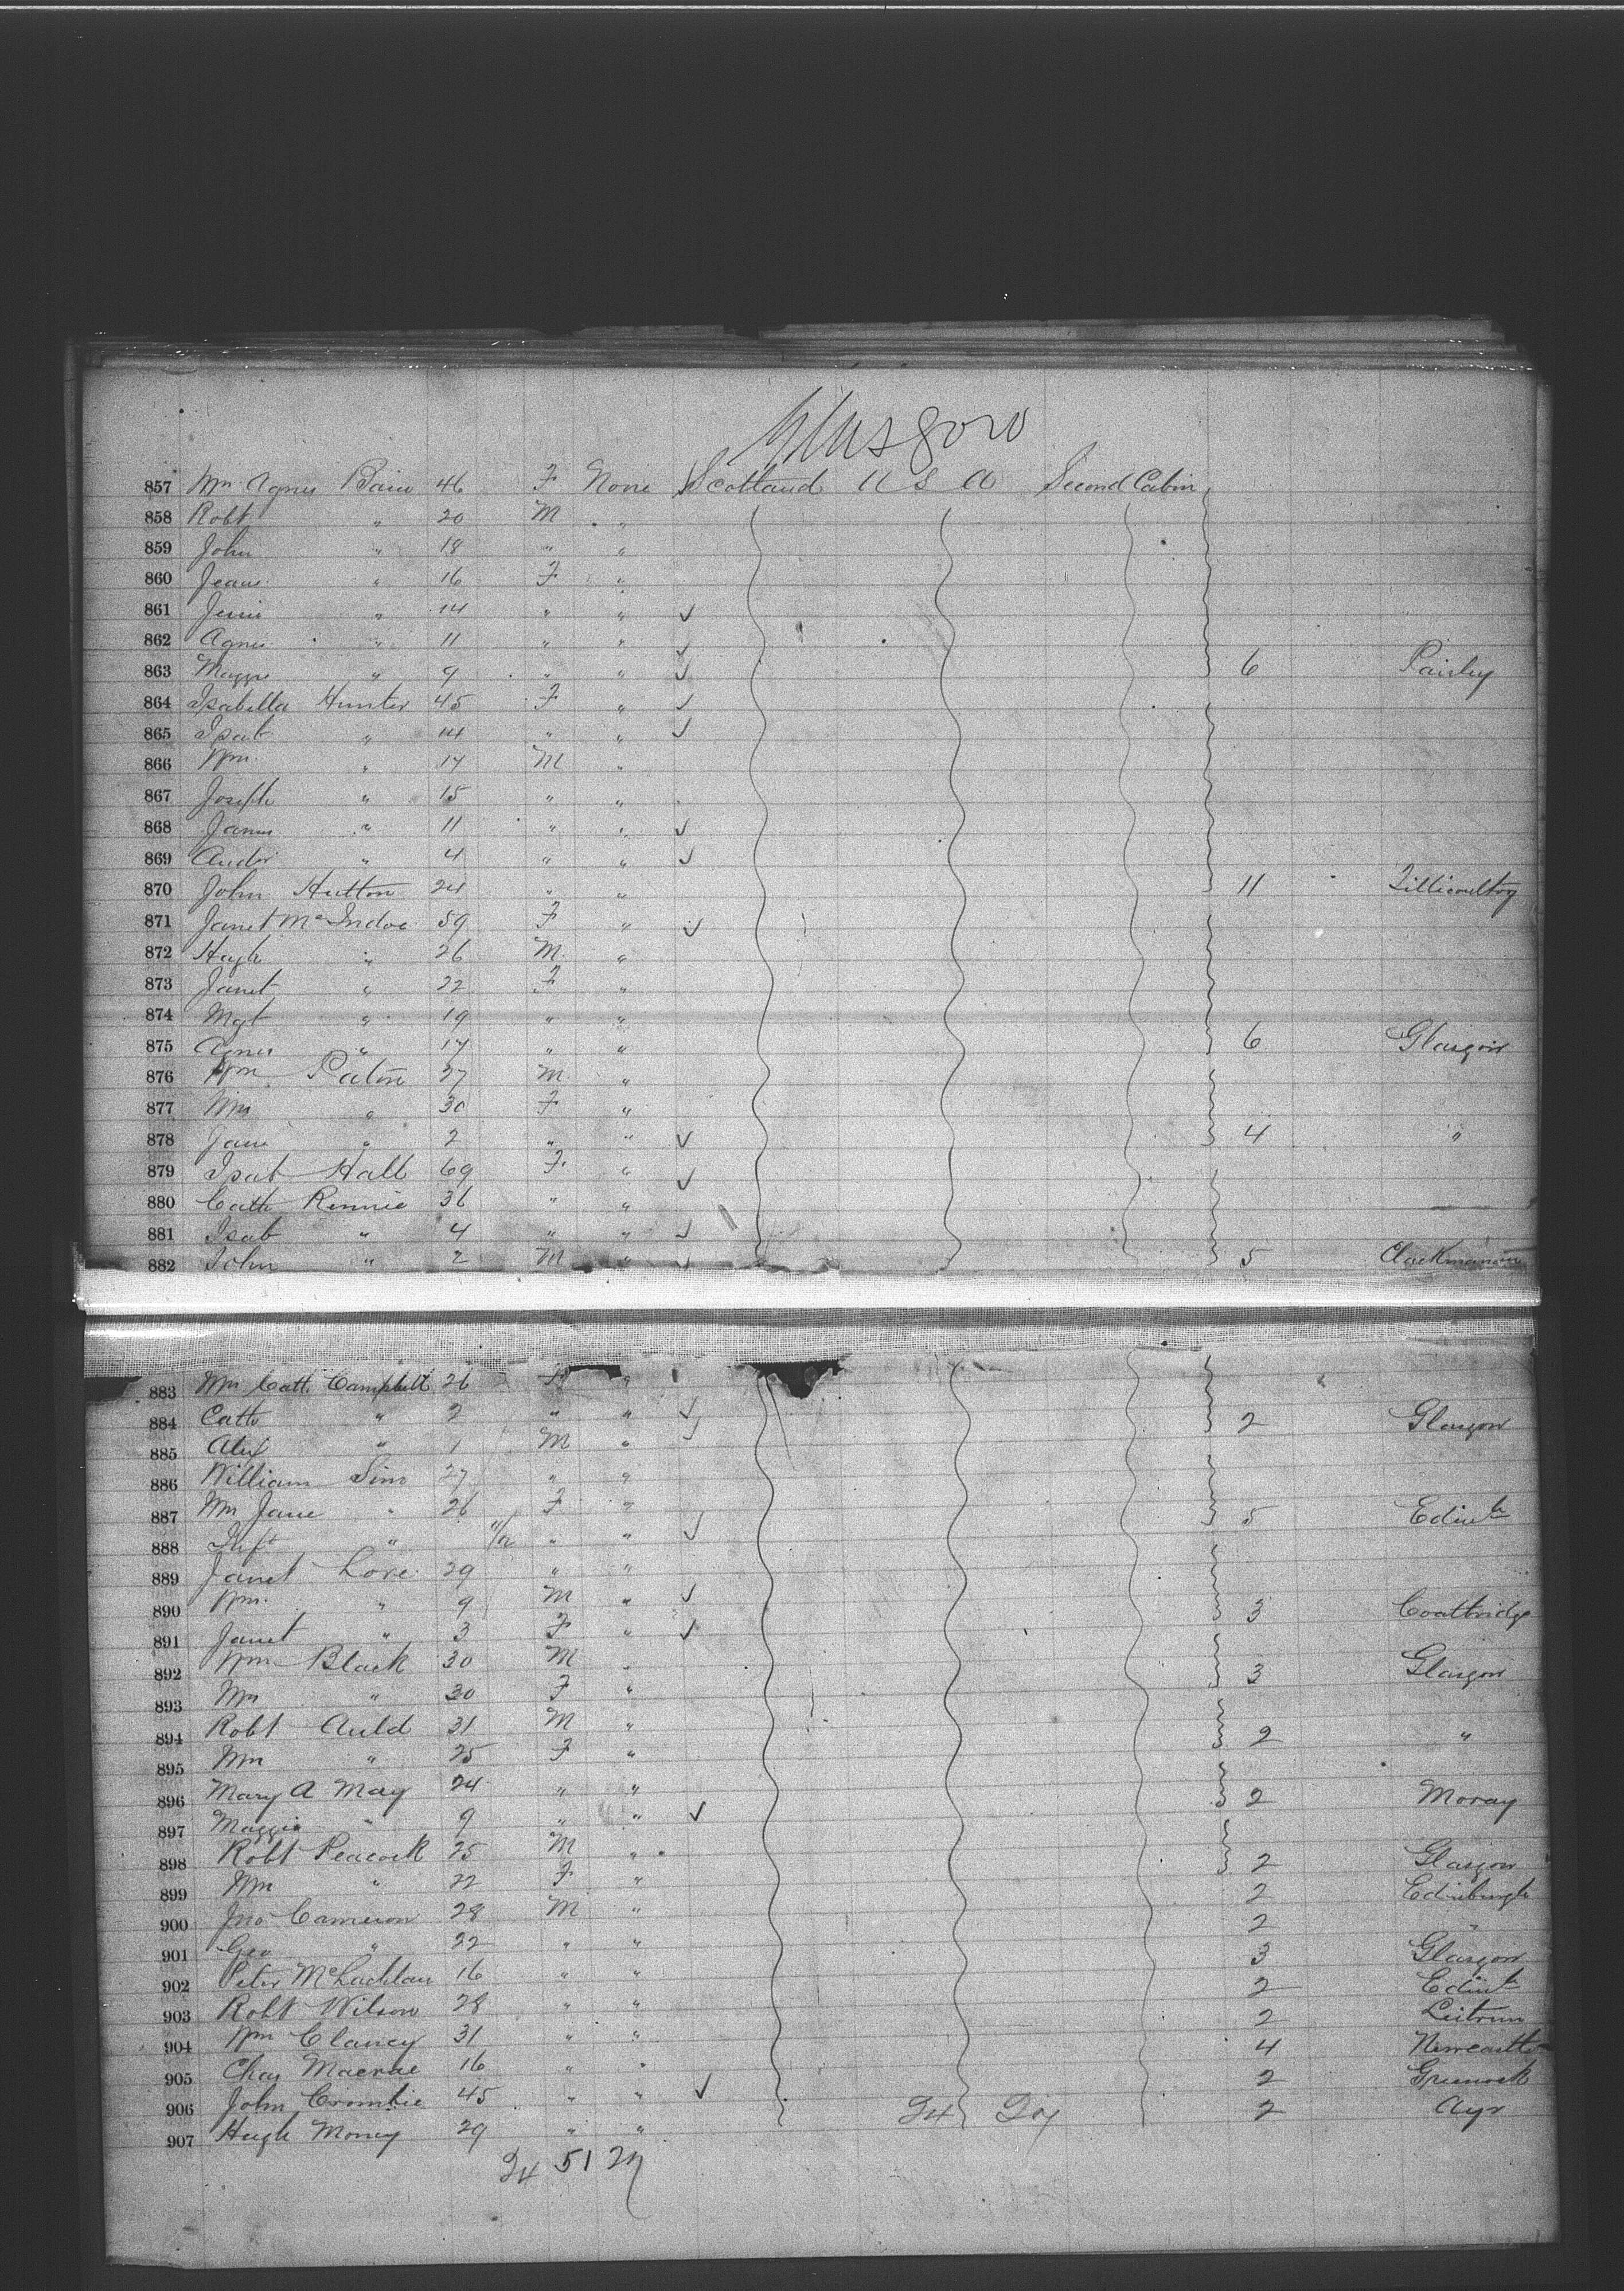 Glasgow
857 Mrs Agnes Bain 46 F None Scotland U S A Second Cabin
858 Robt " 20 M "
859 John " 18 " "
860 Jeanie " 16 F "
861 Jessie " 14 " " ✓
862 Agnes " 11 " " ✓
863 Maggie " 9 " " ✓ 6 Paisley
864 Isabella Hunter 45 F " ✓
865 Isab " 14 " " ✓
866 Wm " 17 M "
867 Joseph " 15 " "
868 James " 11 " " ✓
869 Andw " 4 " " ✓
870 John Hutton 24 " " 11 Tillicoultry
871 Janet McIndoe 59 F " ✓
872 Hugh " 26 M "
873 Janet " 22 F "
874 Mgt " 19 " "
875 Agnes " 17 " " 6 Glasgow
876 Wm Paton 37 M "
877 Mrs " 30 F "
878 Jane " 2 " " ✓ 4 "
879 Isab Hall 69 F " ✓
880 Cath Rennie 36 " "
881 Isab " 4 " " ✓
882 John " 2 M " ✓ 5 Clackmannan
883 Mrs Cath Campbell 26 F "
884 Cath " 2 " " ✓ 2 Glasgow
885 Alex " 1 M " ✓
886 William Sim 27 " "
887 Mrs Jane " 26 F " 5 Edinh
888 Inft " 11/12 " " ✓
889 Janet Love 29 " "
890 Wm " 9 M " ✓ 3 Coatbridge
891 Janet " 3 F " ✓
892 Wm Black 30 M " 3 Glasgow
893 Mrs " 30 F "
894 Robt Auld 31 M " 2 "
895 Mrs " 25 F "
896 Mary A May 24 " " 2 Moray
897 Maggie " 9 " " ✓
898 Robt Peacock 25 M " 2 Glasgow
899 Mrs " 22 F " 2 Edinburgh
900 Jno Cameron 28 M " 2 "
901 Geo " 22 " " 3 Glasgow
902 Peter McLachlan 16 " " 2 Edinh
903 Robt Wilson 28 " " 2 Leitrim
904 Wm Clancy 31 " " 4 Newcastle
905 Chas Macrae 16 " " 2 Greenock
906 John Crombie 45 " " ✓ 2 Ayr
907 Hugh Money 29 " "
24 51 27